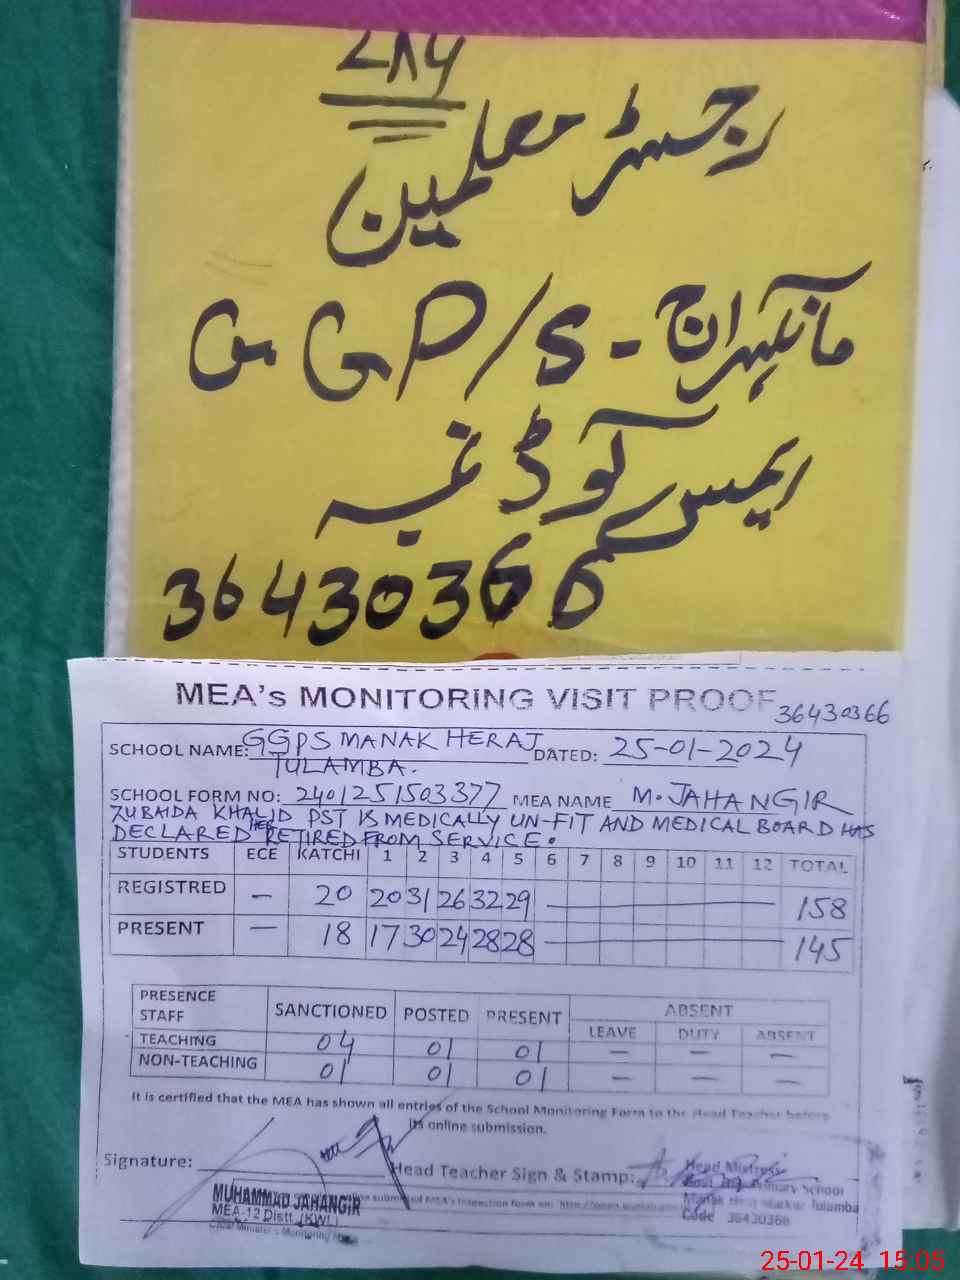 رجسٹر معلمین
GGP/S - مانکہراج
ایمس کوڈ نمبر
36430366
MEA's MONITORING VISIT PROOF
36430366
SCHOOL NAME: GGPS MANAK HERAJ DATED: 25-01-2024
TULAMBA.
SCHOOL FORM NO: 2401251503377 MEA NAME M. JAHANGIR
ZUBAIDA KHALID PST IS MEDICALLY UN-FIT AND MEDICAL BOARD HAS
DECLARED HER RETIRED FROM SERVICE.
STUDENTS ECE KATCHI 1 2 3 4 5 6 7 8 9 10 11 12 TOTAL
REGISTRED — 20 20 31 26 32 29 — 158
PRESENT — 18 17 30 24 28 28 — 145
PRESENCE STAFF SANCTIONED POSTED PRESENT ABSENT
LEAVE DUTY ABSENT
TEACHING 04 01 01 — — —
NON-TEACHING 01 01 01 — — —
It is certified that the MEA has shown all entries of the School Monitoring Form to the Head Teacher before
its online submission.
Signature: Head Teacher Sign & Stamp:
Head Mistress
Primary School
MUHAMMAD JAHANGIR
Manak Markaz Tulamba
MEA-12 Distt. (KWL)
Code 36430366
Chief Minister's Monitoring
25-01-24 15:05